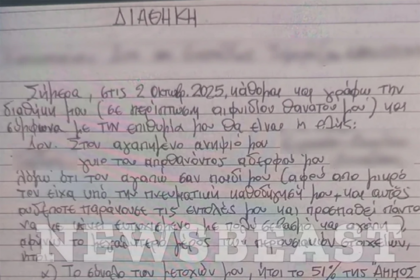 ΔΙΑΘΗΚΗ
Σήμερα, στις 2 Οκτωβρ. 2025, κάθομαι και γράφω την
διαθήκη μου (σε περίπτωση αιφνιδίου θανάτου μου) και
σύμφωνα με την επιθυμία μου θα είναι η εξής:
1ον. Στον αγαπημένο ανηψιό μου
γυιο του αποθανόντος αδερφού μου
λόγω ότι τον αγαπώ σαν παιδί μου (αφού από μικρό
τον είχα υπό την πνευματική καθοδήγησή μου, και αυτός
ουδέποτε παράκουσε τις εντολές μου και προσπαθεί πάντα
να με πολύ σεβασμό και αγάπη
αφήνω το μέρος των περιουσιακών στοιχείων,
ήτοι
α) Το σύνολο των μετοχών μου, ήτοι το 51% της
NEWSBEAST